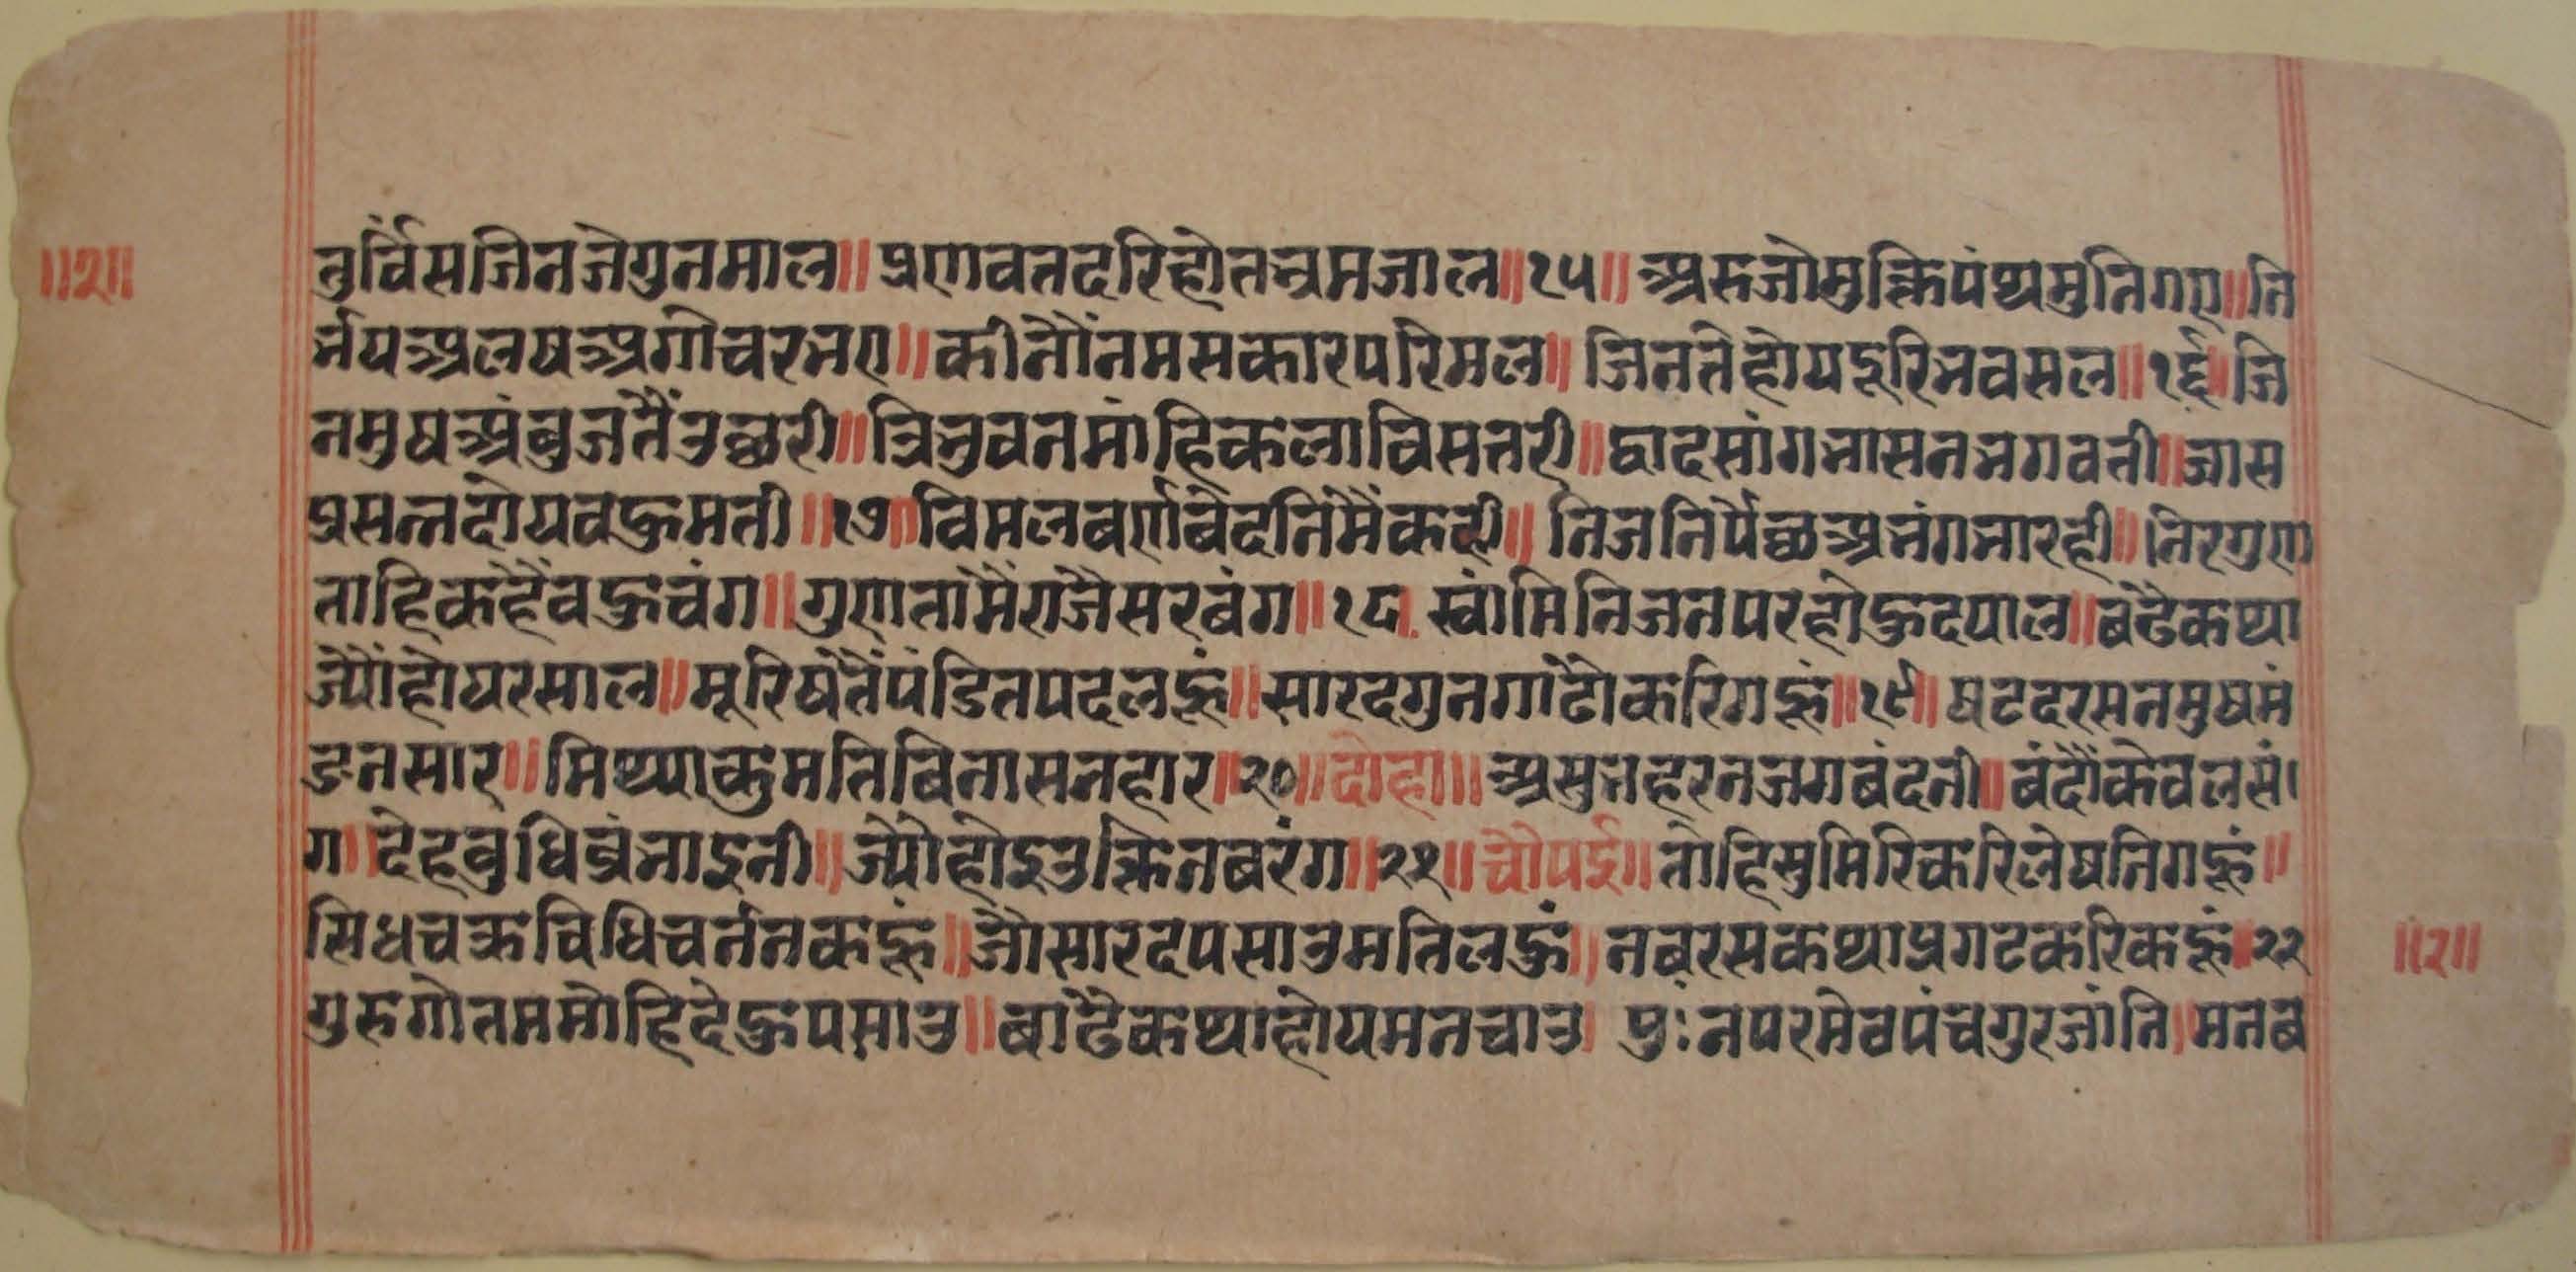 ॥२॥
तुर्विंसजिनजेगुनमाल॥ प्रणवतदूरिहोतभ्रमजाल॥१५॥ अरुजोमुक्तिपंथमुनिगए॥नि
र्भयअलषअगोचरभए॥ कीनौंनमसकारपरिमल॥ जिनतेहोयदूरिभवसल॥१६॥जि
नमुषअंबुजतैंउछरी॥ त्रिभुवनमांहिकलाविसतरी॥ द्वादसांगभासनभगवती॥ जास
प्रसन्नहोयवहुमती॥१७॥विमलबर्णबेदनिमैंकही॥ निजनिर्पैछअभंगभारही॥ निरगुण
ताहिकहैंवहुचंग॥ गुणतामैंराजैसरबंग॥१८ स्वांमिनिजनपरहोहुदयाल॥ बढैकथा
ज्यौंहोयरसाल॥ मूरिषतैंपंडितपदलहूं॥ सारदगुनगाढौकरिगहूं॥१९॥ षटदरसनमुषमं
डनसार॥ मिथ्याकुमतिबिनासनहार॥२०॥दोहा॥ असुभहरनजगबंदनी॥ बंदौंकेवलसं
ग॥ देहबुधिब्रंभाइनी॥ ज्यौहोइउक्तिनबरंग॥२१॥चौपई॥ तोहिसुमिरिकरिलेषनिगहूं॥
सिधचक्रविधिवर्ननकहूं॥ जौसारदपसाउमतिलहुं॥ नबरसकथाप्रगटकरिकहूं॥२२
॥२॥
गुरुगोतममोहिदेहुपसाउ॥ बाढैकथाहोयमनचाउ॥ पुःनपरमेवपंचगुरजांनि। मनब